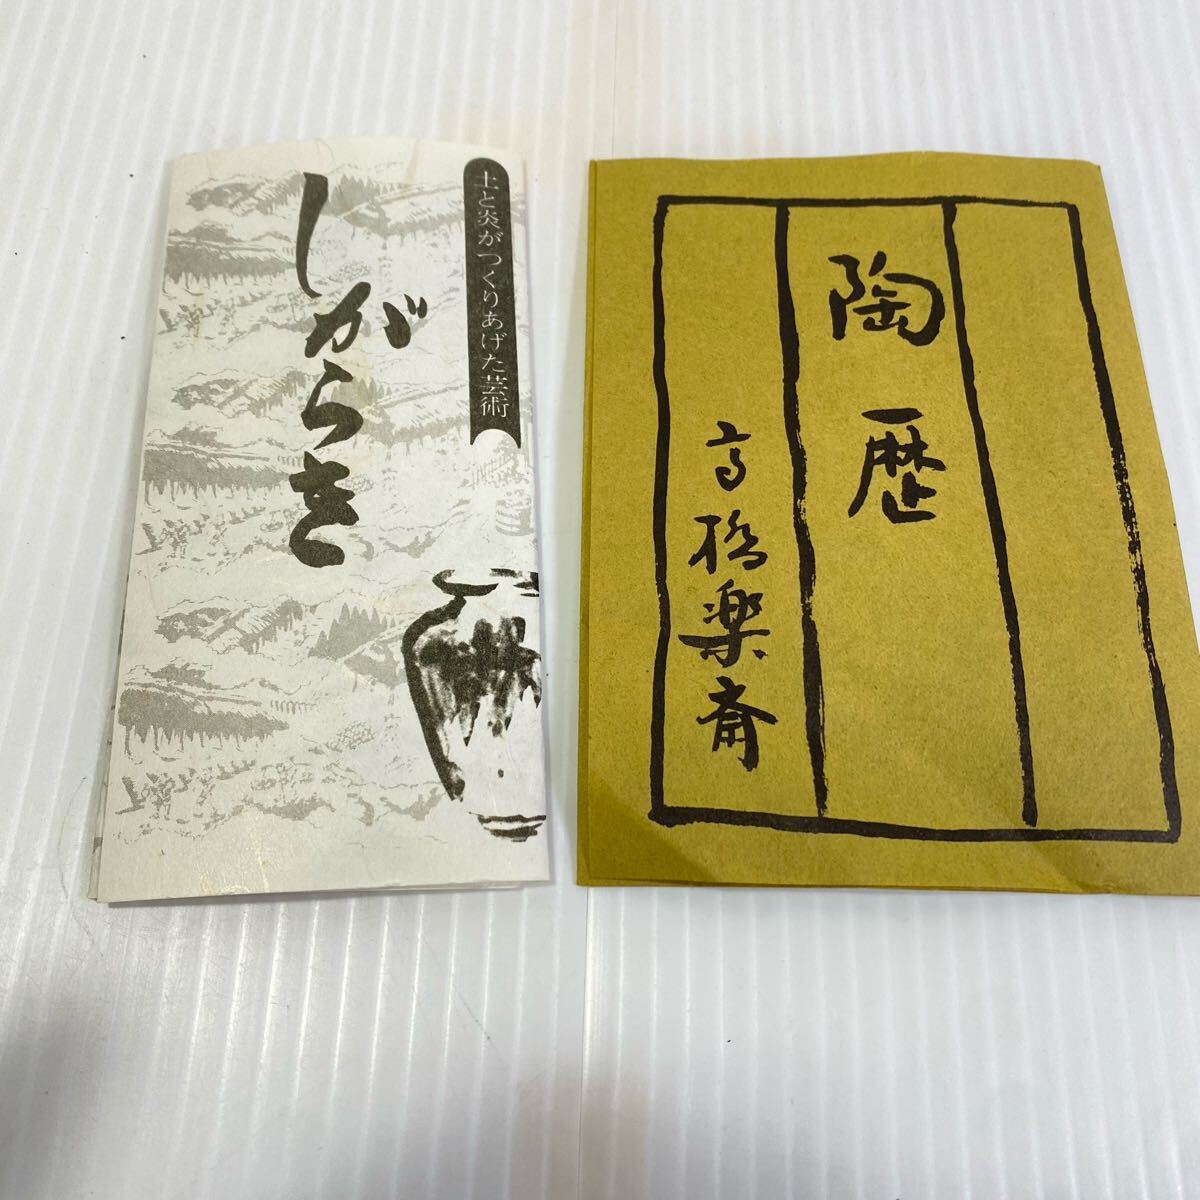 土と炎がつくりあげた芸術
しがらき
陶歴
高橋楽斎